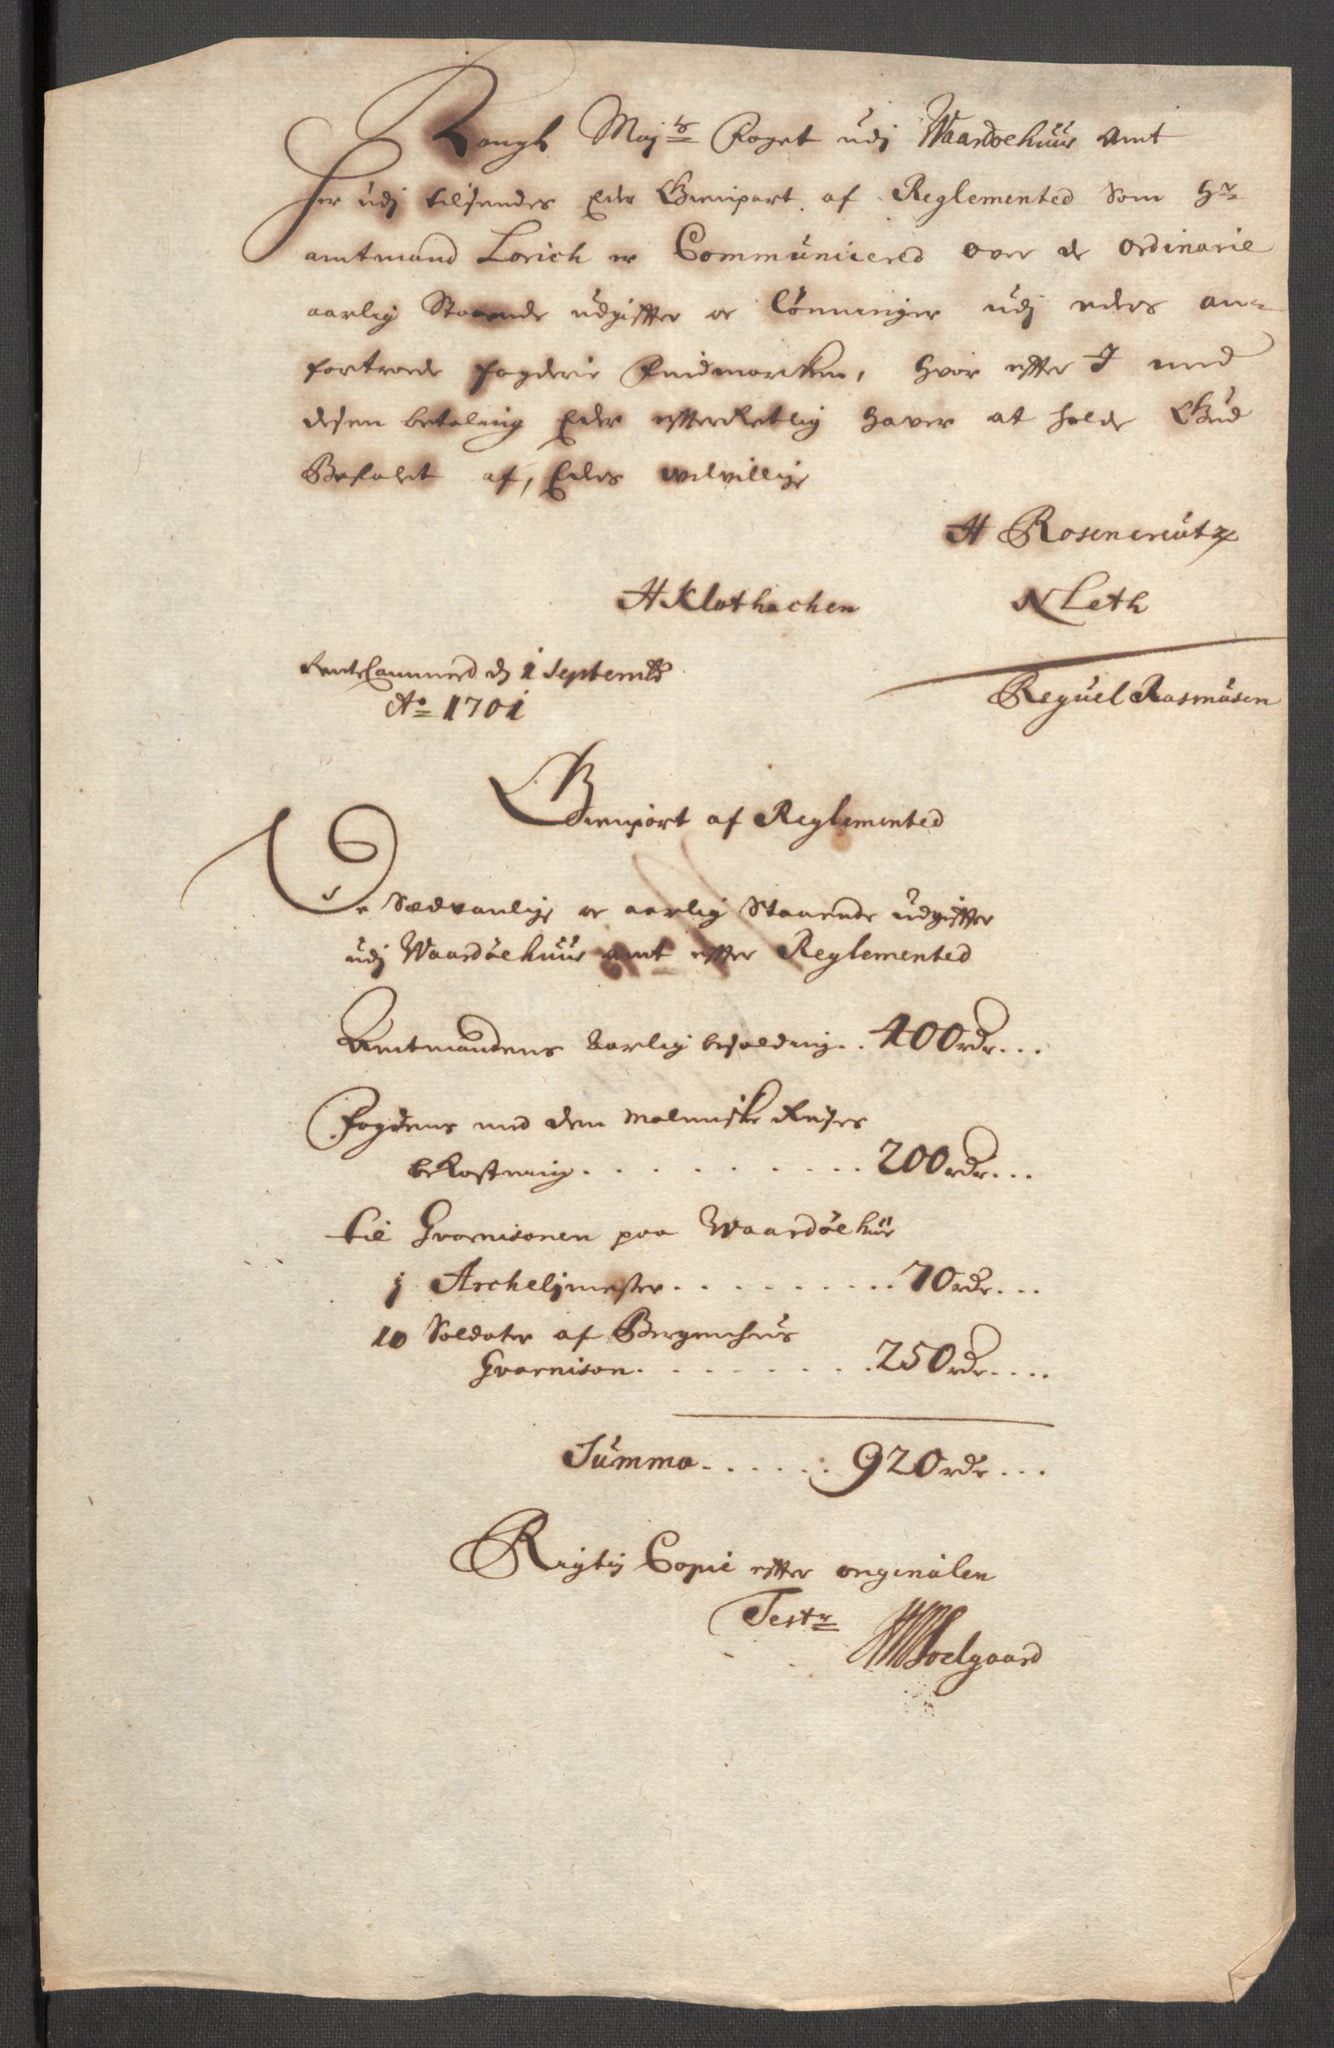 Kongl Maj:ts Foget udj Waardoehuus Amt
Her udj tilsendes Eder Gienpart af Reglemented som Hr
amtmand Lorich er Communicered over de Ordinarie
aarlig Staaende udgiffter oc Lønninger udj eders an-
fortroede fogderie Findmarken, Hvor effter I med
desen betaling Eder effterRetlig haver at holde Gud
Befalet af, Eders velvillige
H Rosencreutz
H Klothachen N Leth
RenteCammered d 1 Septembr
Ao 1701
Reguel Rasmusen
Gienpart af Reglemented
De Sædvanlige oc aarlig Staaende udgiffter
udj Waardøehuus amt effter Reglemented
Amtmandens Aarlig besolding . . 400 rdr . . .
Fogdens med dem malmiske Reises
bekostning . . . . . . . . . . 200 rdr . . .
til Gvarnisonen paa Waardøehuus
1 Archelimester . . . . . . . . . . 70 rdr . . .
10 Soldater af Bergenhuus
Gvarnison . . . . . . . . 250 rdr . . . .
Summa . . . . . . 920 rdr . . .
Rigtig Copie effter orginalen
Testr
Soelgaard